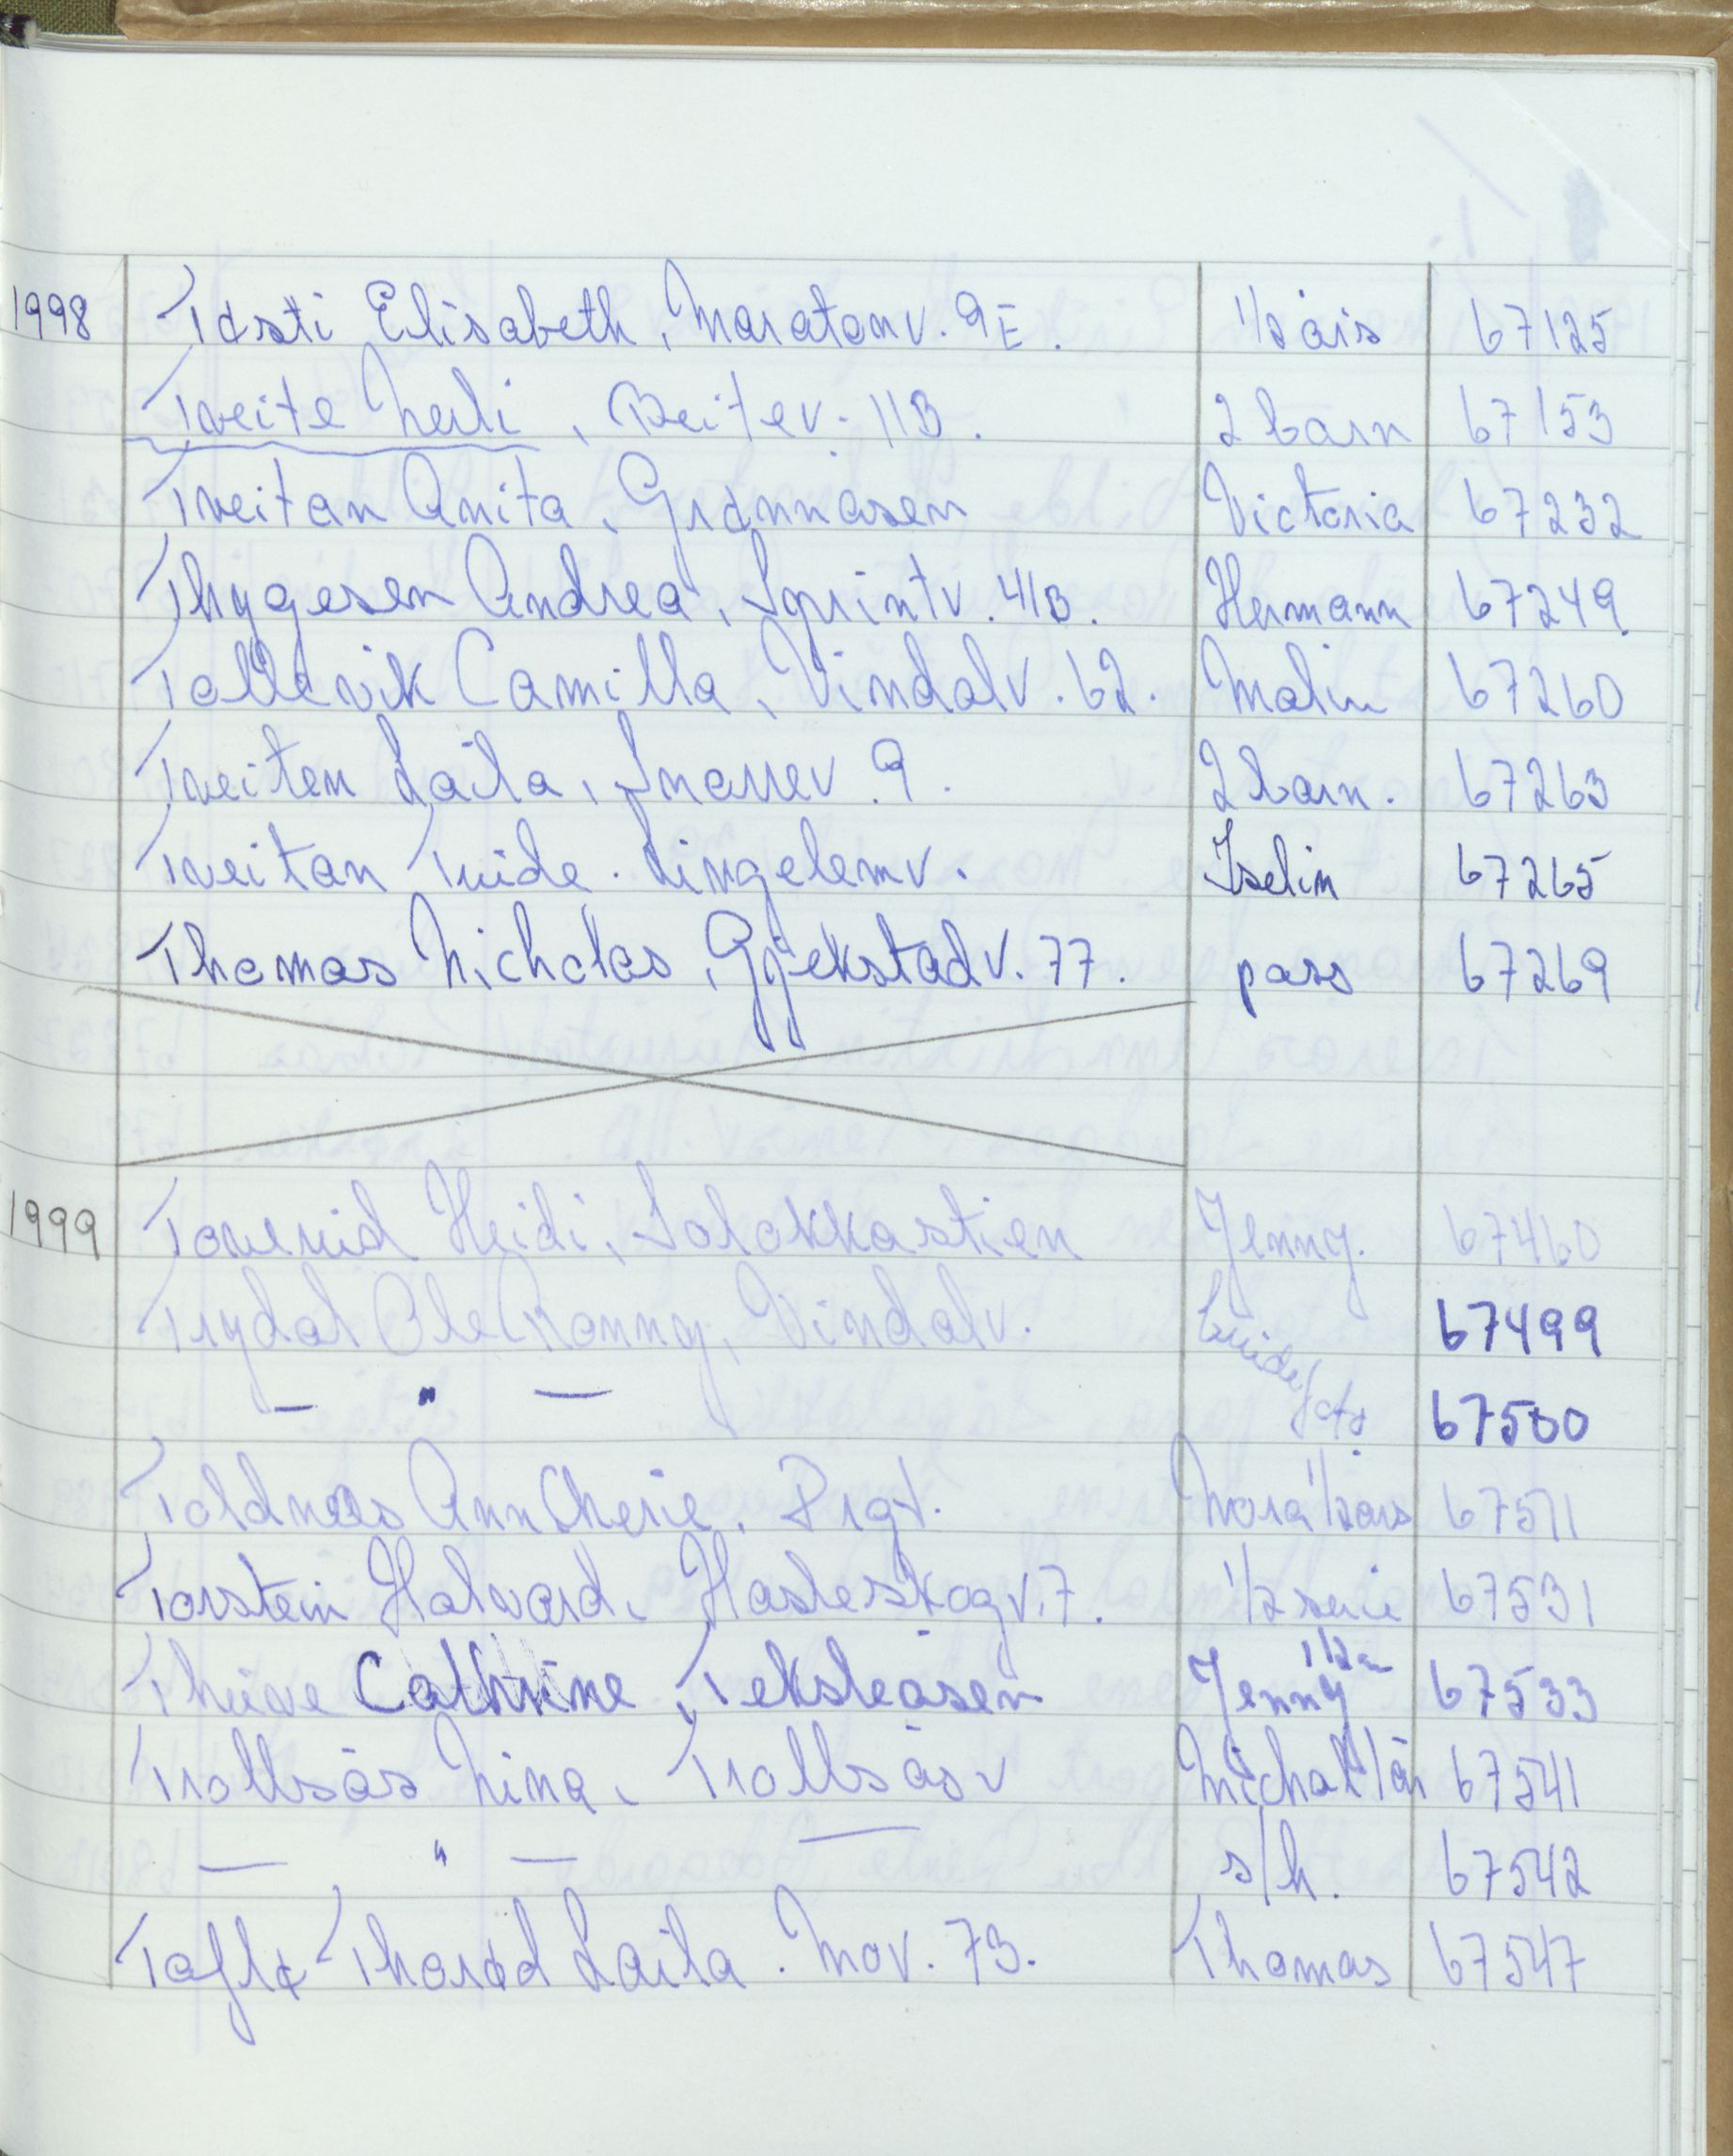 1998 Tøsti Elisabeth, Maratonv. 9E. 1/2 års 67125
Tveite Neli, Reitev. 11B. 2 barn 67153
Tveitan Anita, Grønnåsen Victoria 67232
Thygesen Andrea, Sprintv. 41B. Hermann 67249
Tollevik Camilla, Vindalv. 62. Malin 67260
Tveiten Laila, Snarrev. 9. 2 barn. 67263
Tveitan Turide. Lingelemv. Iselin 67265
Thomas Nicholas, Gjekstadv. 77. pass 67269
1999 Toverud Heidi, Solokkastien Jenny. 67460
Trydal Ole Ronny, Vindalv. 67499
— " — 67500
Toldnes Ann Cherie. Prgt. Nora 1/2 års 67511
Torstein Halvard, Hasleskogv. 7. 1/2 serie 67531
Cathrine, Teksleåsen Jenny 1/2 67533
Trollsås Nina, Trollsåsv Michal 1 år 67541
— " — — s/h. 67542
Tafló Thorød Laila. Mov. 73. Thomas 67547